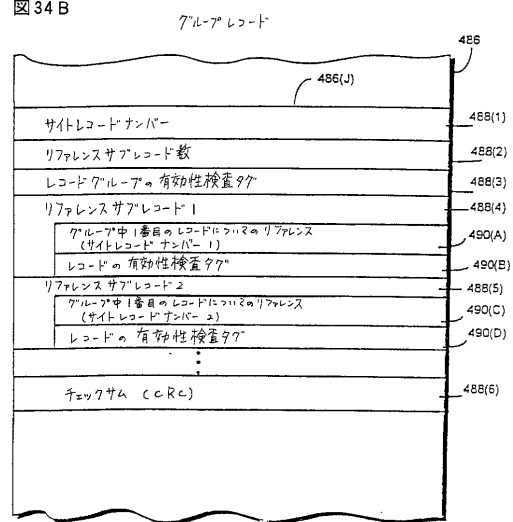 図34B
グループレコード
486
486(J)
サイトレコードナンバー
488(1)
リファレンスサブレコード数
488(2)
レコードグループの有効性検査タグ
488(3)
リファレンスサブレコード1
488(4)
グループ中1番目のレコードについてのリファレンス
(サイトレコードナンバー1)
490(A)
レコードの有効性検査タグ
490(B)
リファレンスサブレコード2
488(5)
グループ中1番目のレコードについてのリファレンス
(サイトレコードナンバー2)
490(C)
レコードの有効性検査タグ
490(D)
チェックサム (CRC)
488(6)